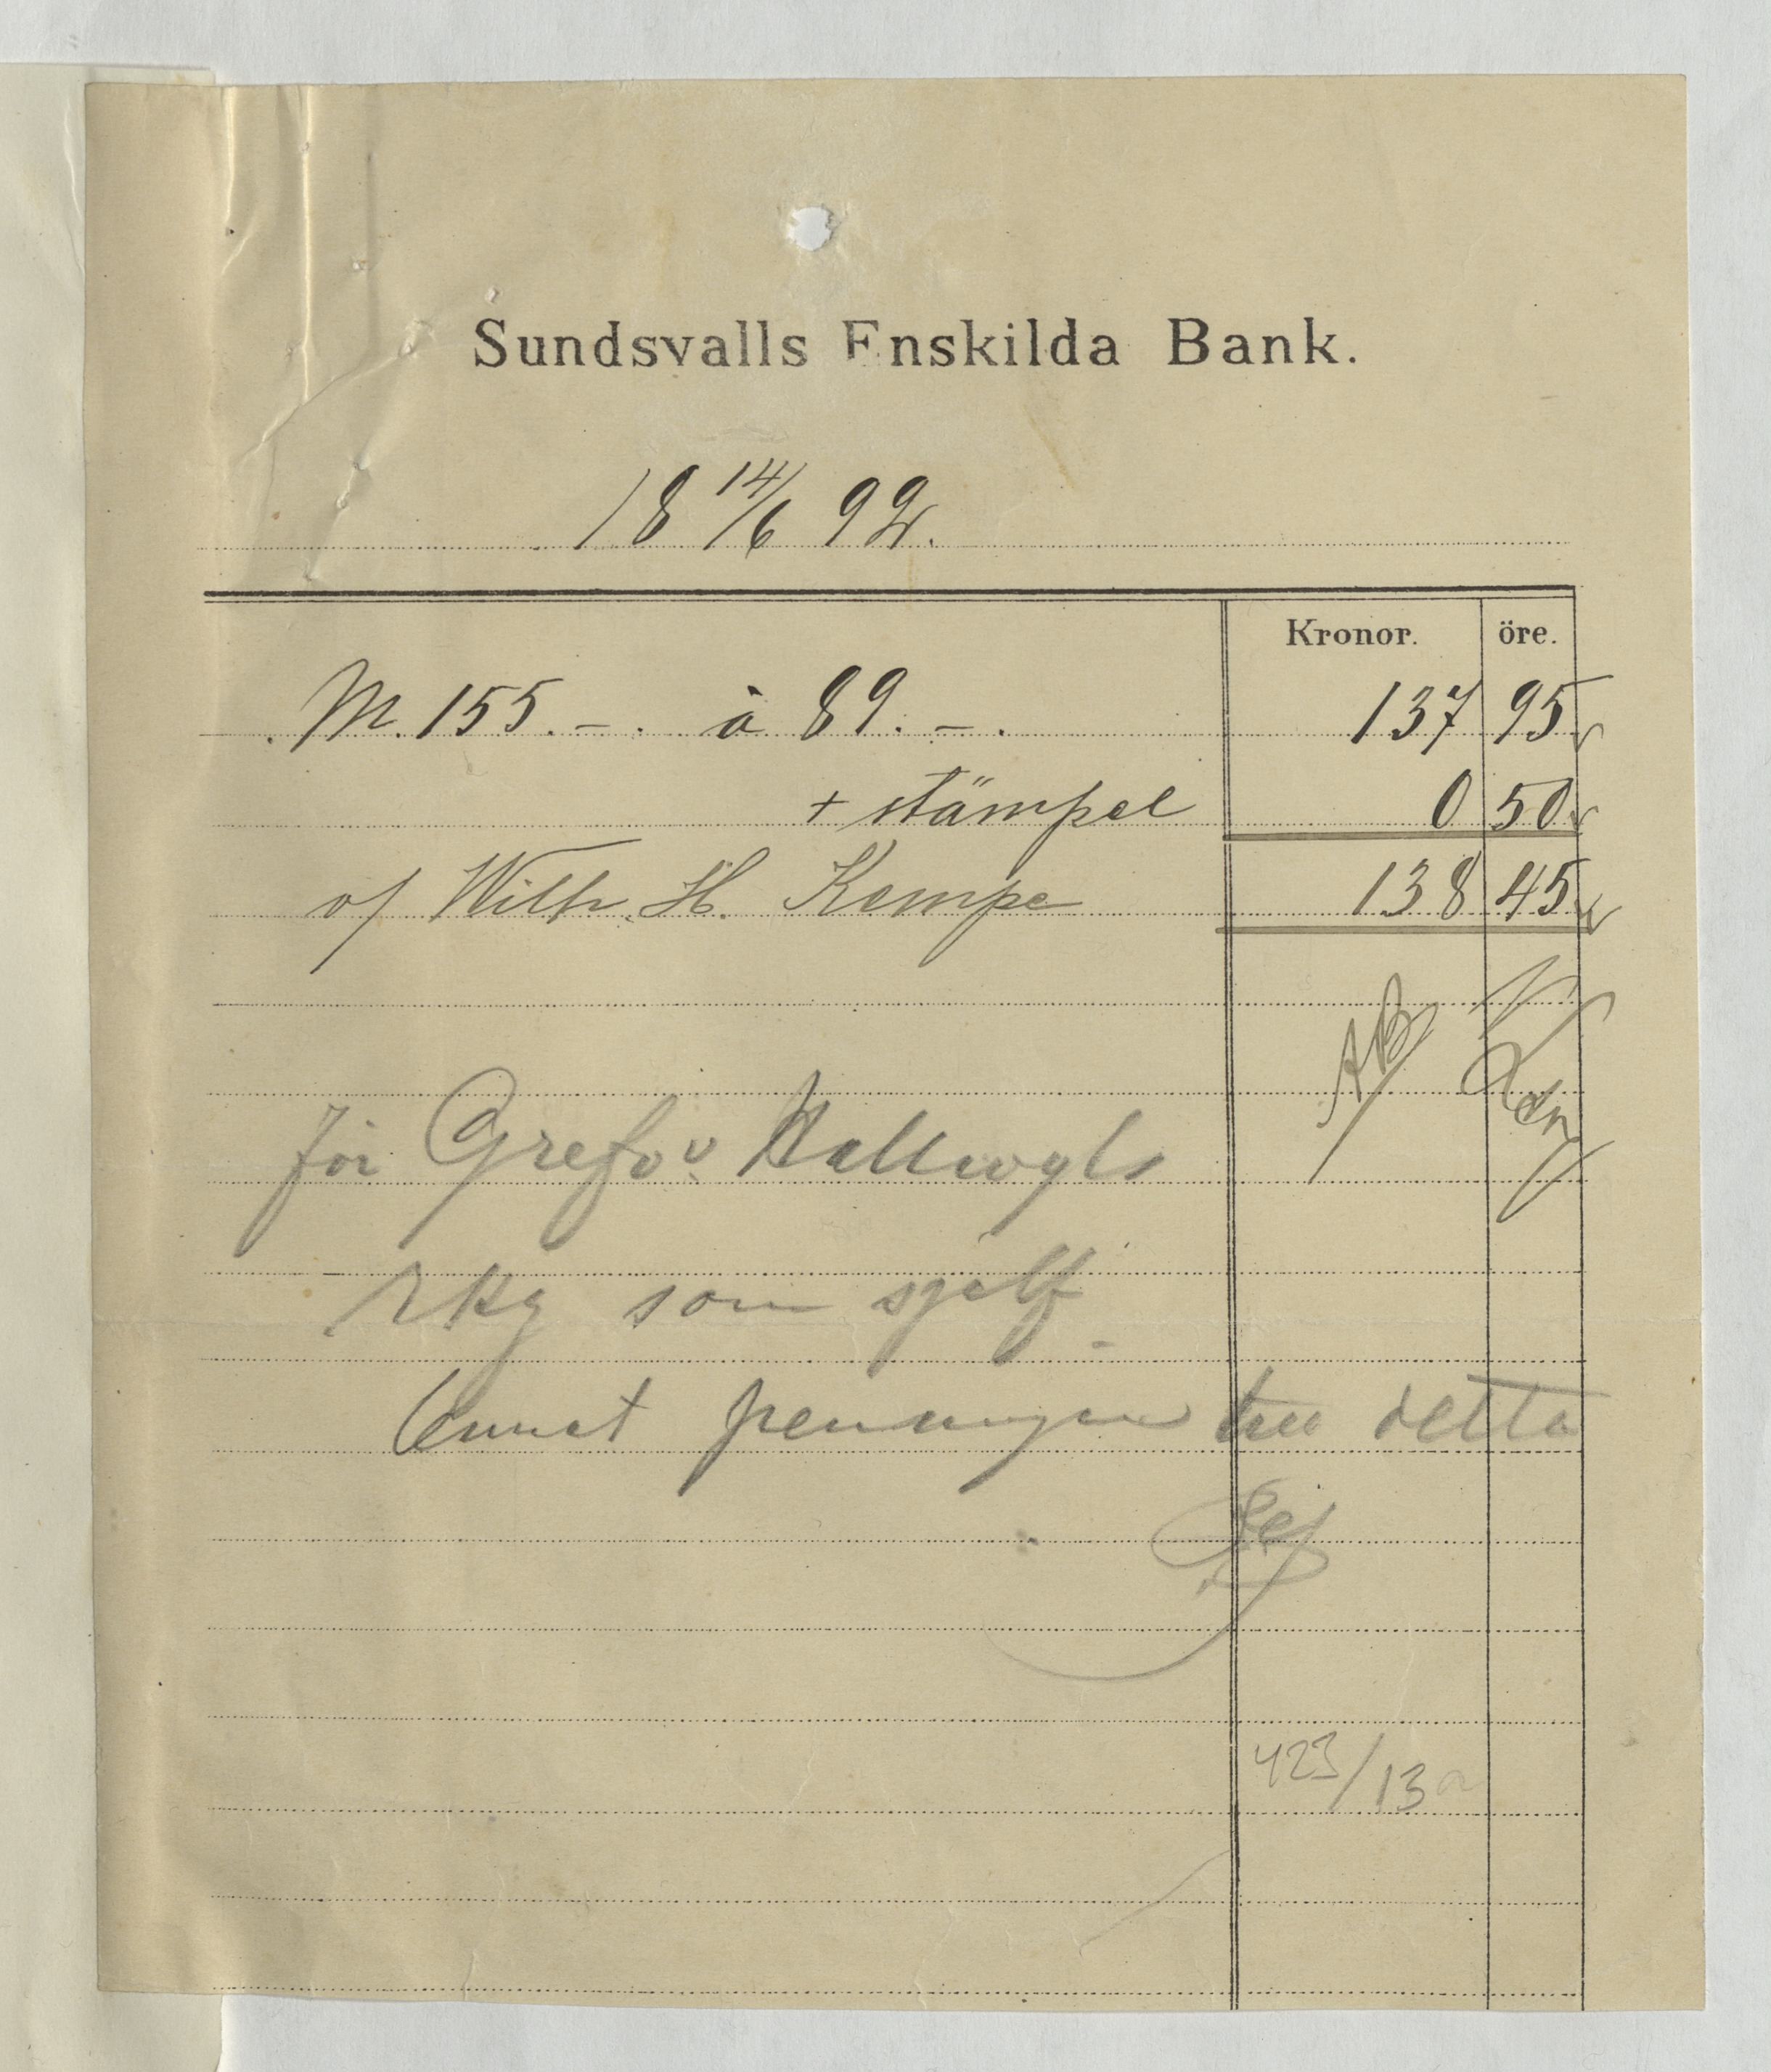 Sundsvalls Enskilda Bank.
18 14/6 92.
Kronor. öre.
M. 155. –. à 89. –. 137 95
+ stämpel 0 50
o/ Wilh. H. Kempe 138 45
AB
för Grefve v. Hallwyls
rkg som sjelf
lemnat penningar till detta
423/13